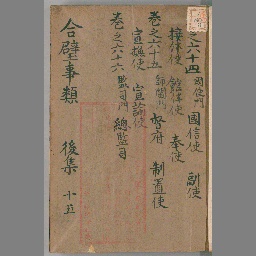 卷之六十四 國使門 國信使 副使
接伴使 館伴使 奉使
卷之六十五 帥閫門 督府 制置使
宣撫使 宣諭使
卷之六十六 監司門 總監司
合璧事類 後集 十五